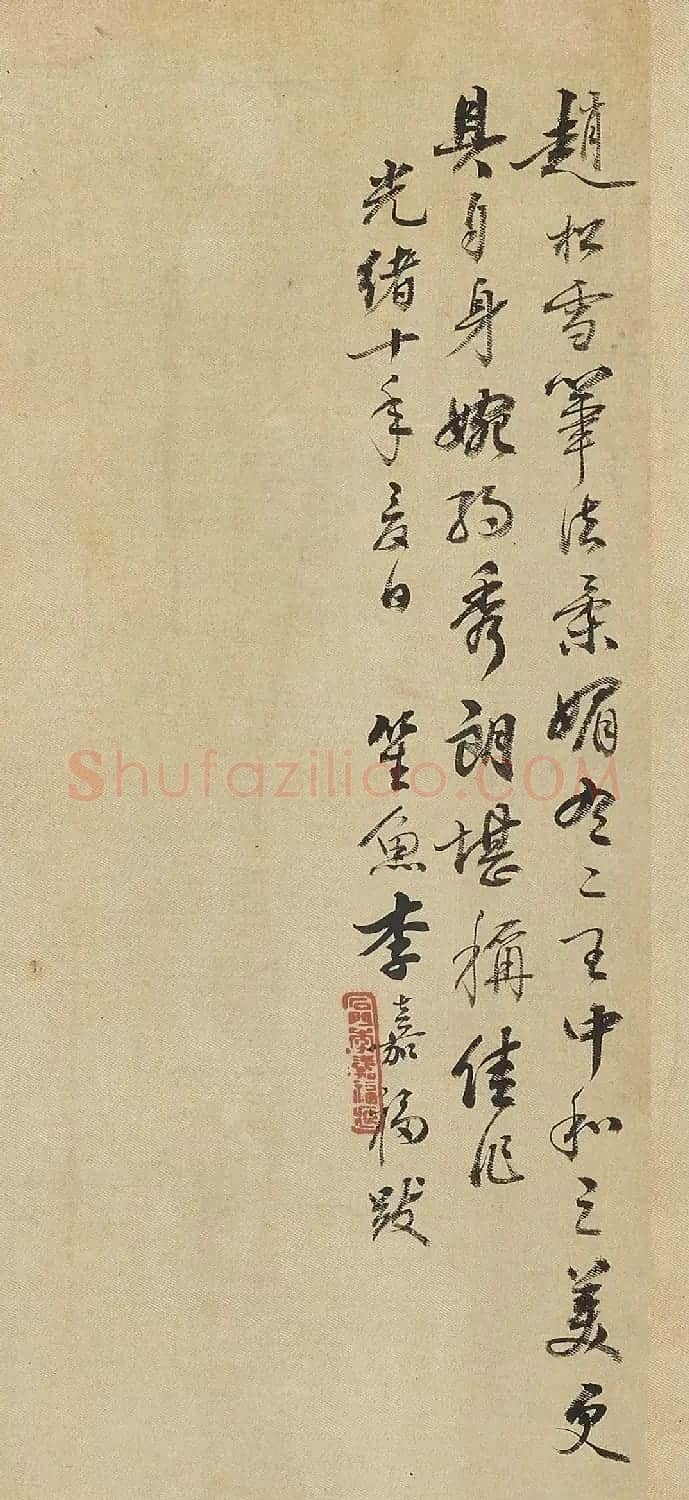 趙松雪筆法柔媚二王中和之美更
具自身婉約秀朗堪稱佳作
光緒十年夏日 笙魚李嘉福跋
石門李嘉福
Shufaziliao.COM